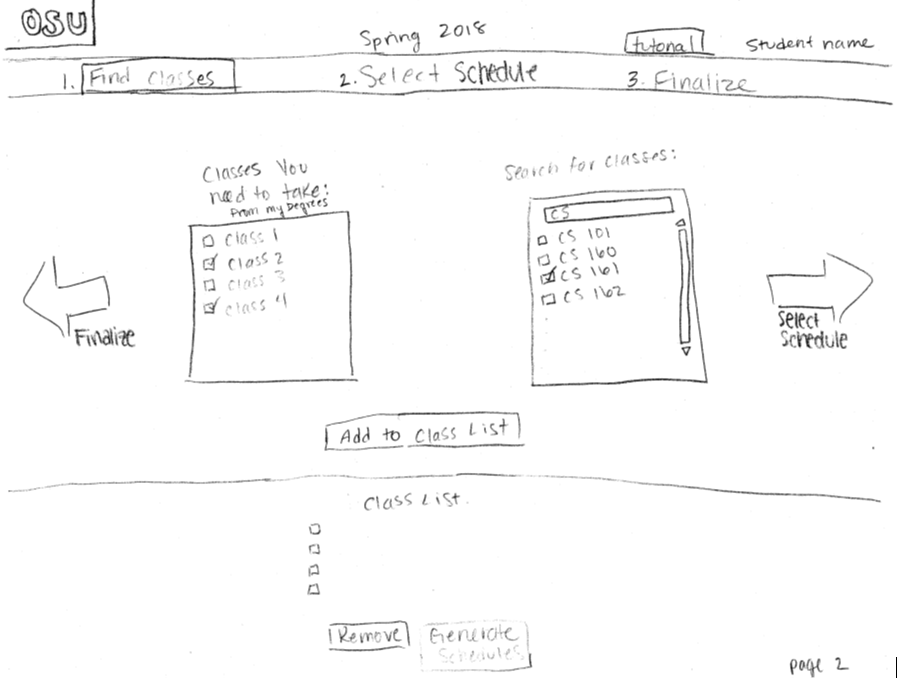 OSU
Spring 2018
tutorial
Student name
1. Find Classes
2. Select Schedule
3. Finalize
Classes You
need to take:
From my Degrees
Class 1
Class 2
Class 3
Class 4
Search for classes:
CS
CS 101
CS 160
CS 161
CS 162
Finalize
Select
Schedule
Add to Class List
Class List
Remove
Generate
Schedules
page 2